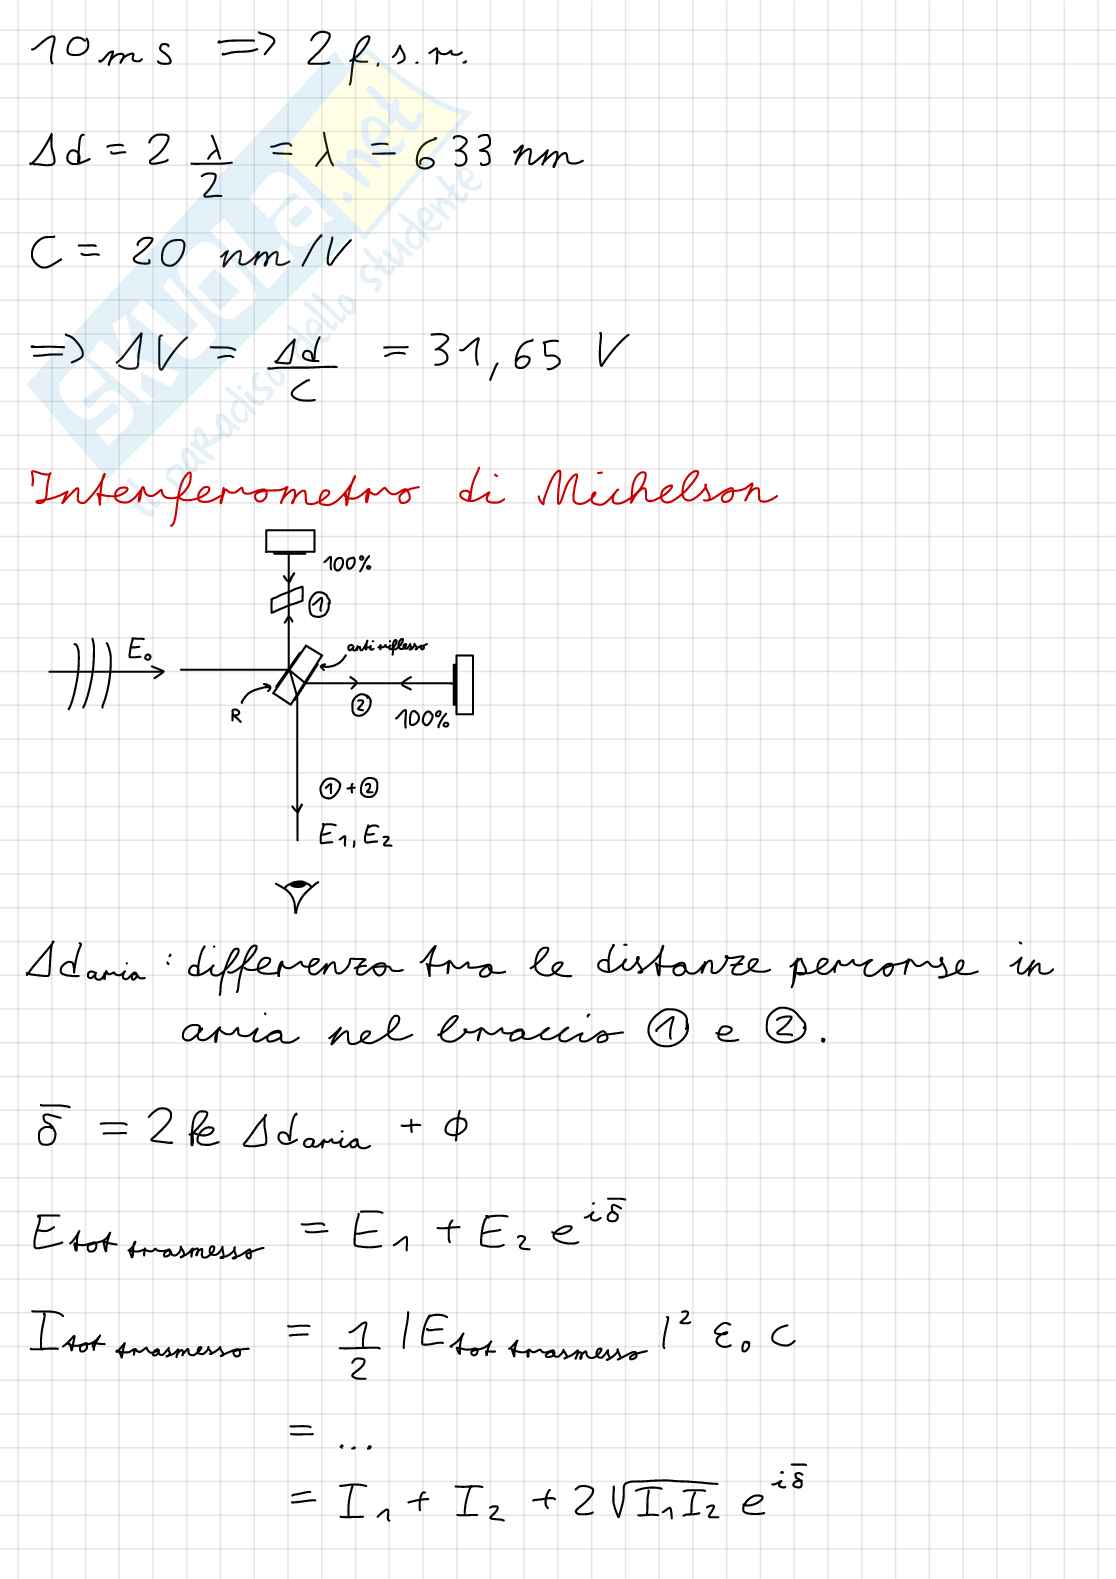 10 ms ⇒ 2 f.s.r.
Δd = 2 λ/2 = λ = 633 nm
C = 20 nm/V
⇒ ΔV = Δd/C = 31,65 V
SKUOLA.net
il paradiso dello studente
Interferometro di Michelson
100%
①
E₀
antiriflesso
R
②
100%
① + ②
E₁, E₂
Δd_aria : differenza tra le distanze percorse in
aria nel braccio ① e ②.
δ̅ = 2k Δd_aria + ϕ
E_tot trasmesso = E₁ + E₂ e^{iδ̅}
I_tot trasmesso = 1/2 |E_tot trasmesso|² ε₀ c
= ...
= I₁ + I₂ + 2√(I₁I₂) e^{iδ̅}